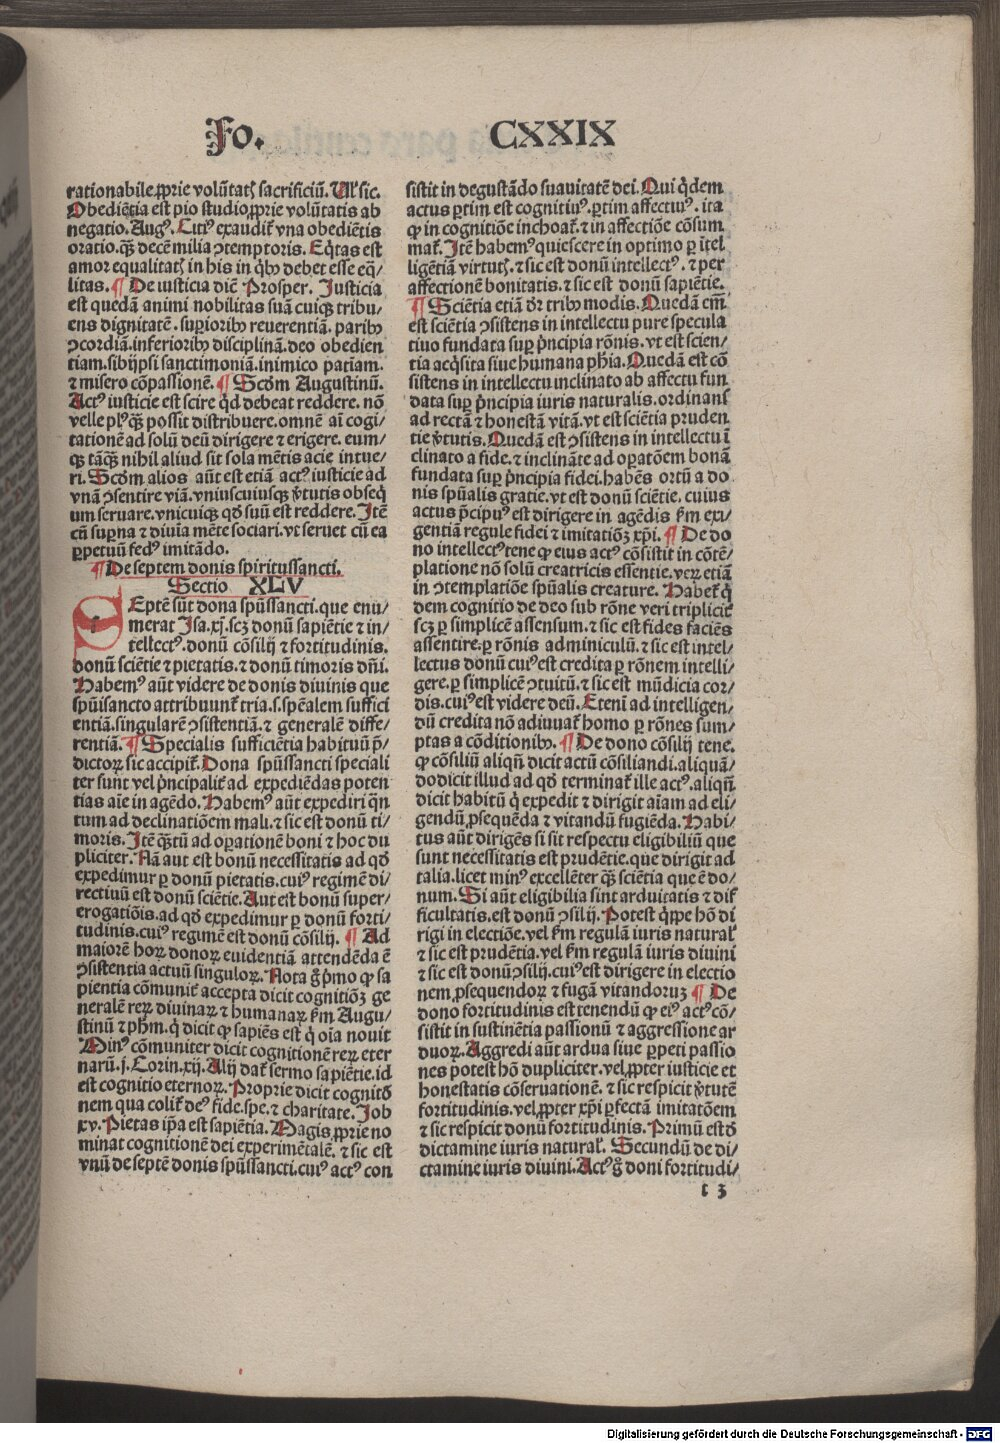 Fo. CXXIX
rationabile ꝓprie volũtatꝭ sacrificiũ. Ul' sic.
Obediẽtia est pio studio ꝓprie volũtatis ab
negatio. Augꝰ. Citiꝰ exaudit᷑ vna obediẽtis
oratio. qꝫ̃ decẽ milia ꝯtemptoris. Eqͥtas est
amor equalitatꝭ in his in qͥbꝰ debet esse eq̃/
litas. ¶ De iusticia diẽ Prosper. Justicia
est quedã animi nobilitas suã cuiqꝫ tribu/
ens dignitatẽ. suꝑioribꝰ reuerentiã. paribꝰ
ꝯcordiã. inferioribꝰ disciplinã. deo obedien
tiam. sibijpsi sanctimoniã. inimico patiẽam.
⁊ misero cõpassionẽ. ¶ Scḋm Augustinũ.
Actꝰ iusticie est scire qͥd debeat reddere. nõ
velle plꝰ qꝫ̃ possit distribuere. omnẽ aĩ cogi/
tationẽ ad solũ deũ dirigere ⁊ erigere. eum/
qꝫ tãqꝫ̃ nihil aliud sit sola mẽtis acie intue/
ri. Scḋm alios aũt est etiã actꝰ iusticie ad
vnã ꝯsentire viã. vniuscuiusqꝫ v̓tutis obseq̓
um seruare. vnicuiqꝫ qḋ suũ est reddere. Jtẽ
cũ suꝑna ⁊ diuĩa mẽte sociari. vt seruet cũ ea
ꝑpetuũ fedꝰ imitãdo.
¶ De septem donis spiritussancti.
Sectio XLV
SEptẽ sũt dona spũssancti. que enu/
merat Jsa. xj. scꝫ donũ sapiẽtie ⁊ in/
tellectꝰ. donũ cõsilij ⁊ fortitudinis.
donũ sciẽtie ⁊ pietatis. ⁊ donũ timoris dñi.
Habemꝰ aũt videre de donis diuinis que
spũisancto attribuunt᷑ tria. s. spẽalem suffici
entiã. singularẽ ꝯsistentiã. ⁊ generalẽ diffe/
rentiã. ¶ Specialis sufficiẽtia habituũ p̃/
dictoꝝ sic accipit᷑. Dona spũssancti speciali
ter sunt vel pͥncipalit᷑ ad expediẽdas poten
tias aĩe in agẽdo. Habemꝰ aũt expediri qñ
tum ad declinatiõem mali. ⁊ sic est donũ ti/
moris. Jtẽ qꝫ̃tũ ad oꝑationẽ boni ⁊ hoc du
pliciter. Nã aut est bonũ necessitatis ad qḋ
expedimur ꝑ donũ pietatis. cuiꝰ regimẽ di/
rectiuũ est donũ sciẽtie. Aut est bonũ super/
erogatiõis. ad qḋ expedimur ꝑ donũ forti/
tudinis. cuiꝰ regimẽ est donũ cõsilij. ¶ Ad
maiorẽ hoꝝ donoꝝ euidentiã attendẽda ẽ
ꝯsistentia actuũ singuloꝝ. Nota g̊ pͥmo ꝙ sa
pientia cõmunit᷑ accepta dicit cognitiõꝫ ge
neralẽ reꝝ diuinaꝝ ⁊ humanaꝝ ẜm Augu/
stinũ ⁊ pħm. qͥ dicit ꝙ sapiẽs est qͥ oĩa nouit
Minꝰ cõmuniter dicit cognitionẽ reꝝ eter
narũ. j. Corin. xij. Alij dat᷑ sermo sapiẽtie. id
est cognitio eternoꝝ. Proprie dicit cognitõ
nem qua colit᷑ deꝰ fide. spe. ⁊ charitate. Job
xv. Pietas ip̃a est sapiẽtia. Magis ꝓprie no
minat cognitionẽ dei experimẽtalẽ. ⁊ sic est
vnũ de septẽ donis spũssancti. cuiꝰ actꝰ con
sistit in degustãdo suauitatẽ dei. Qui qͥdem
actus ꝑtim est cognitiuꝰ. ꝑtim affectiuꝰ. ita
ꝙ in cognitiõe inchoat᷑. ⁊ in affectiõe cõsum
mat᷑. Jtẽ habemꝰ quiescere in optimo ꝑ ĩtel
ligẽtiã virtutꝭ. ⁊ sic est donũ intellectꝰ. ⁊ per
affectionẽ bonitatis. ⁊ sic est donũ sapiẽtie.
¶ Sciẽtia etiã dr̃ tribꝰ modis. Quedã em̃
est sciẽtia ꝯsistens in intellectu pure specula
tiuo fundata suꝑ pͥncipia rõnis. vt est scien/
tia acqͥsita siue humana pħia. Quedã est cõ
sistens in intellectu inclinato ab affectu fun
data suꝑ pͥncipia iuris naturalis. ordinans
ad rectã ⁊ honestã vitã. vt est sciẽtia pruden
tie v̓tutis. Quedã est ꝯsistens in intellectu ĩ
clinato a fide. ⁊ inclinãte ad oꝑatõem bonã
fundata suꝑ pͥncipia fidei. habẽs ortũ a do
nis spũalis gratie. vt est donũ sciẽtie. cuius
actus pͥcipuꝰ est dirigere in agẽdis ẜm exi/
gentiã regule fidei ⁊ imitatiõꝫ xp̃i. ¶ De do
no intellectꝰ tene ꝙ eius actꝰ cõsistit in cõtẽ/
platione nõ solũ creatricis essentie. veꝝ etiã
in ꝯtemplatiõe spũalis creature. Habet᷑ qͥ
dem cognitio de deo sub rõne veri triplicit᷑
scꝫ ꝑ simplicẽ assensum. ⁊ sic est fides faciẽs
assentire. ꝑ rõnis adminiculũ. ⁊ sic est intel/
lectus donũ cuiꝰ est credita ꝑ rõnem intelli/
gere. ꝑ simplicẽ ꝯtuitũ. ⁊ sic est mũdicia cor/
dis. cuiꝰ est videre deũ. Eteni ad intelligen/
dũ credita nõ adiuuat᷑ homo ꝑ rõnes sum/
ptas a cõditionibꝰ. ¶ De dono cõsilij tene.
ꝙ cõsiliũ aliqñ dicit actũ cõsiliandi. aliquã/
do dicit illud ad qḋ terminat᷑ ille actꝰ. aliqñ
dicit habitũ qͥ expedit ⁊ dirigit aĩam ad eli/
gendũ ꝓsequẽda ⁊ vitandũ fugiẽda. Habi/
tus aũt dirigẽs si sit respectu eligibiliũ que
sunt necessitatis est prudẽtie. que dirigit ad
talia. licet minꝰ excellẽter qꝫ̃ sciẽtia que ẽ do/
num. Si aũt eligibilia sint arduitatis ⁊ dif
ficultatis. est donũ ꝯsilij. Potest qͥppe hõ di
rigi in electiõe. vel ẜm regulã iuris natural'
⁊ sic est prudẽtia. vel ẜm regulã iuris diuini
⁊ sic est donũ ꝯsilij. cuiꝰ est dirigere in electio
nem ꝓsequendoꝝ ⁊ fugã vitandoruꝫ ¶ De
dono fortitudinis est tenendũ ꝙ eiꝰ actꝰ cõ/
sistit in sustinẽtia passionũ ⁊ aggressione ar
duoꝝ. Aggredi aũt ardua siue ꝑpeti passio
nes potest hõ dupliciter. vel ꝓpter iusticie et
honestatis cõseruationẽ. ⁊ sic respicit v̓tutẽ
fortitudinis. vel ꝓpter xp̃i ꝑfectã imitatõem
⁊ sic respicit donũ fortitudinis. Primũ est ḋ
dictamine iuris natural'. Secundũ de di/
ctamine iuris diuini. Actꝰ g̊ doni fortitudi/
t 3
Digitalisierung gefördert durch die Deutsche Forschungsgemeinschaft - DFG